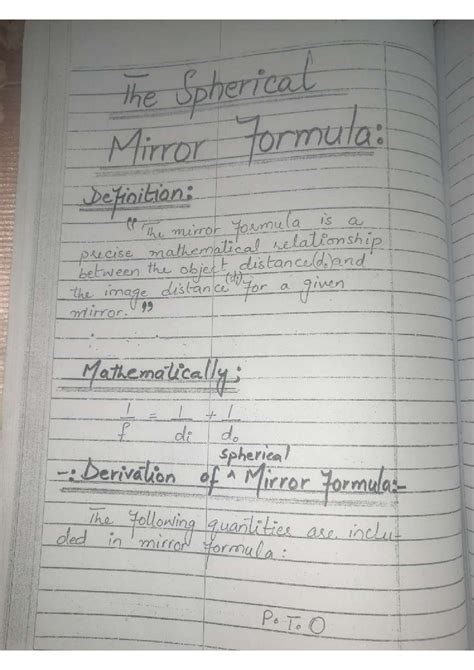 The Spherical
Mirror Formula:
Definition:
"The mirror formula is a
precise mathematical relationship
between the object distance(do) and
the image distance (di) for a given
mirror."
Mathematically:
1/f = 1/di + 1/do
-: Derivation of ^ spherical Mirror Formula:-
The following quantities are inclu-
ded in mirror formula:
P.T.O